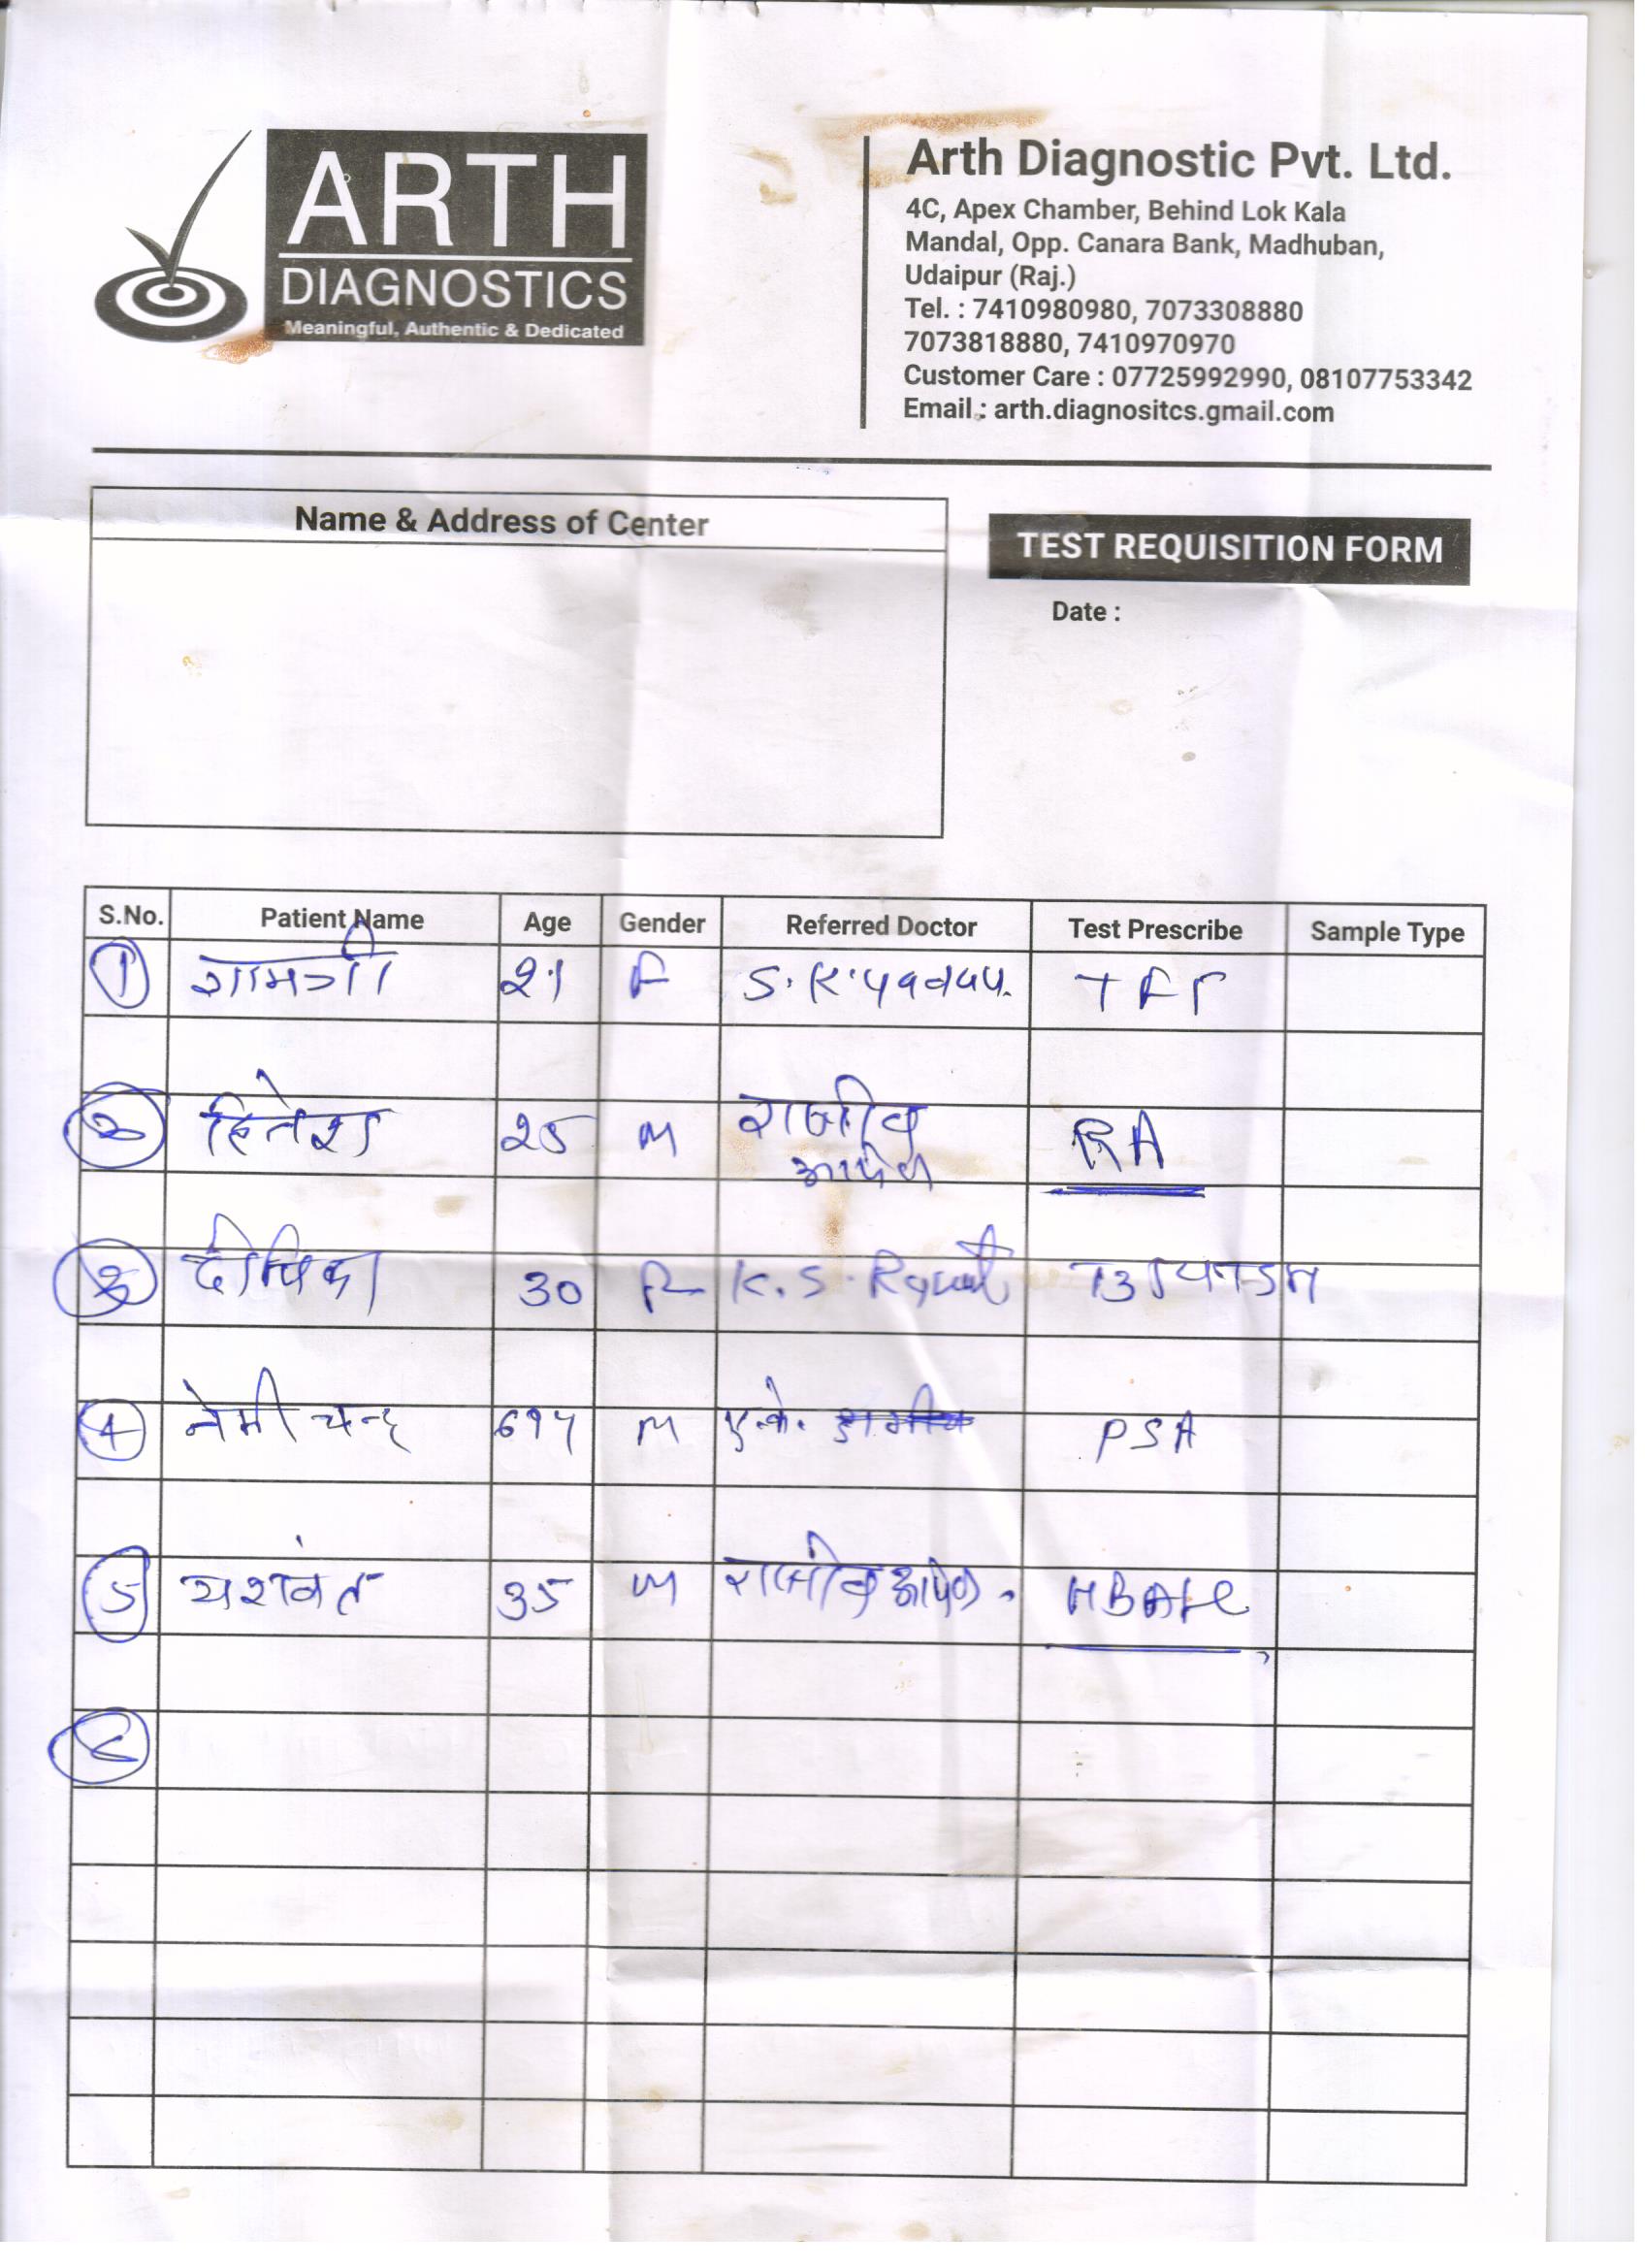 ARTH
DIAGNOSTICS
Meaningful, Authentic & Dedicated
Arth Diagnostic Pvt. Ltd.
4C, Apex Chamber, Behind Lok Kala
Mandal, Opp. Canara Bank, Madhuban,
Udaipur (Raj.)
Tel. : 7410980980, 7073308880
7073818880, 7410970970
Customer Care : 07725992990, 08107753342
Email : arth.diagnositcs.gmail.com
Name & Address of Center
TEST REQUISITION FORM
Date :
S.No. Patient Name Age Gender Referred Doctor Test Prescribe Sample Type
1 21 F S. K. yadav.
2 हितेश 25 M राजीव RA
3 दीपिका 30 F K. S.
4 नेमी चन्द M ए.के. PSA
5 यशवंत 35 M राजीव HBA1C